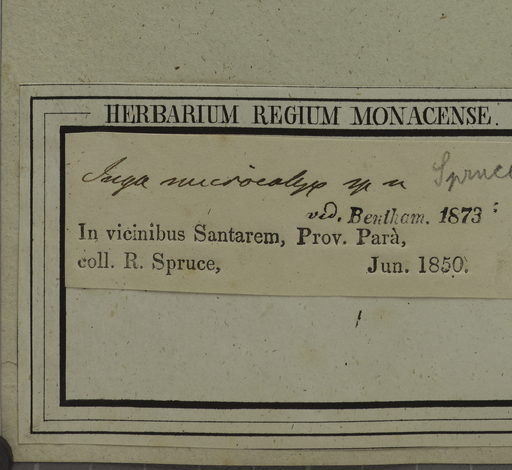 HERBARIUM REGIUM MONACENSE.
Inga microcalyx sp n Spruce
ved. Bentham. 1873
In vicinibus Santarem, Prov. Parà,
coll. R. Spruce, Jun. 1850.